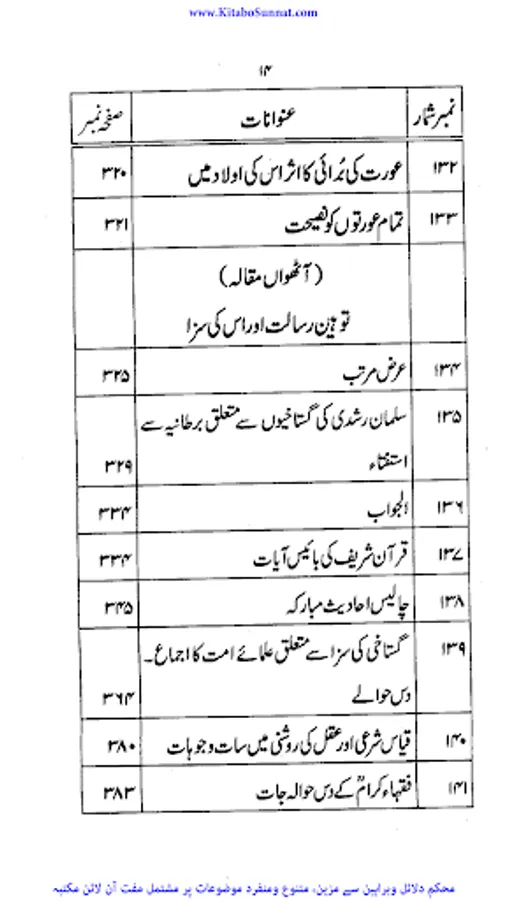 www.KitaboSunnat.com
۱۴
نمبر شمار عنوانات صفحہ نمبر
۱۳۲ عورت کی بُرائی کا اثر اس کی اولاد میں ۳۲۰
۱۳۳ تمام عورتوں کو نصیحت ۳۲۱
(آٹھواں مقالہ)
توہین رسالت اور اس کی سزا
۱۳۴ عرض مرتب ۳۲۵
۱۳۵ سلمان رشدی کی گستاخیوں سے متعلق برطانیہ سے
استفتاء ۳۲۹
۱۳۶ الجواب ۳۳۴
۱۳۷ قرآن شریف کی بائیس آیات ۳۳۴
۱۳۸ چالیس احادیث مبارکہ ۳۴۵
۱۳۹ گستاخی کی سزا سے متعلق علمائے امت کا اجماع۔
دس حوالے ۳۶۴
۱۴۰ قیاس شرعی اور عقل کی روشنی میں سات وجوہات ۳۸۰
۱۴۱ فقہاء کرامؒ کے دس حوالہ جات ۳۸۳
محکم دلائل وبراہین سے مزین، متنوع ومنفرد موضوعات پر مشتمل مفت آن لائن مکتبہ